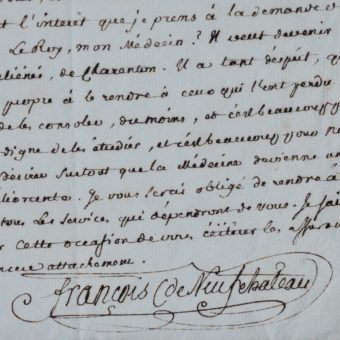 t l'intérêt que je prens à la demande
Le Roy, mon Médecin? Il veut devenir
aliénés, de Charenton. Il a tant d'esprit, qu
propre à le rendre à ceux qui l'ont perdu
de les consoler, du moins, et c'est beaucoup
digne de les étudier, et c'est beaucoup pour
surtout que la Médecine devienne un
Je vous serai obligé de rendre à
tous les services, qui dépendront de vous. Je sai
cette occasion de vous réitérer les
attachement.
François (de Neufchateau